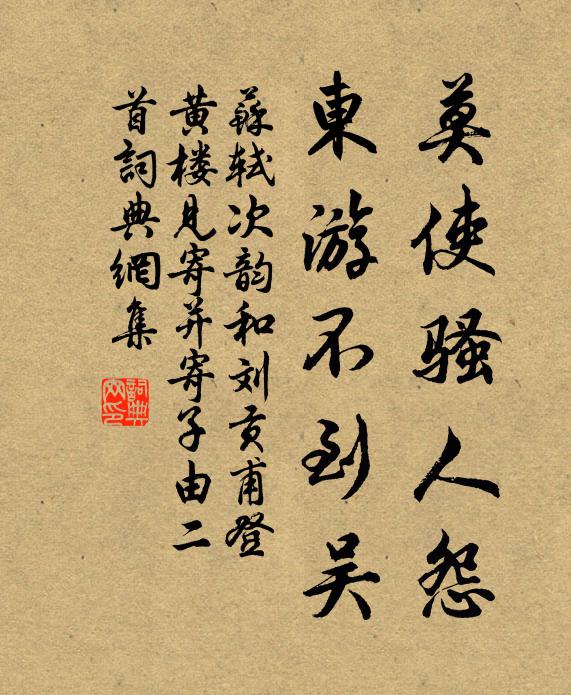 莫使骚人怨
東游不到吴
蘇轼次韵和刘贡甫登
黄楼见寄并寄子由二
首詞典網集
詞典
网印